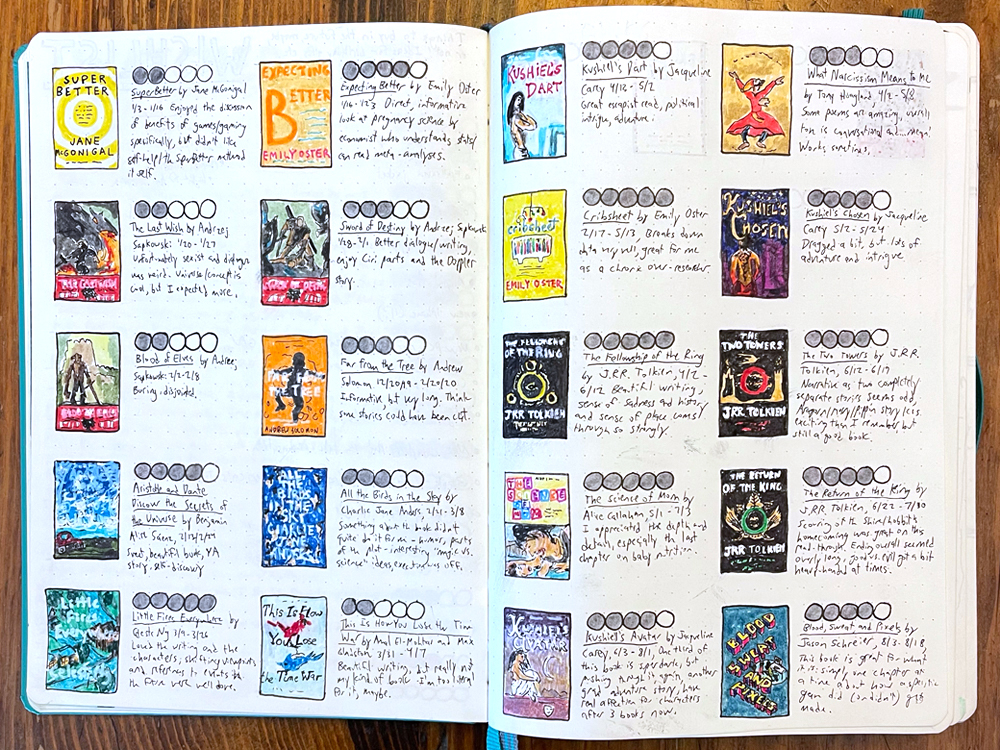 SUPER
BETTER
JANE
McGONIGAL
SuperBetter by Jane McGonigal
1/3 - 1/16 Enjoyed the discussion
of benefits of games/gaming
specifically, but didn't like
self-help/the SuperBetter method
itself.
EXPECTING
BETTER
EMILY OSTER
Expecting Better by Emily Oster
1/16 - 1/23 Direct, informative
look at pregnancy science by
economist who understands stats/
can read meta-analyses.
The Last Wish by Andrzej
Sapkowski: 1/20 - 1/27
Unfortunately sexist and dialogue
was weird. Universe/concept is
cool, but I expected more.
Sword of Destiny by Andrzej Sapkowski
1/28 - 2/1. Better dialogue/writing,
enjoy Ciri parts and the Doppler
story.
BLOOD OF ELVES
Blood of Elves by Andrzej
Sapkowski: 2/2 - 2/8
Boring, disjointed.
FAR FROM
THE TREE
ANDREW SOLOMON
Far from the Tree by Andrew
Solomon, 12/2019 - 2/20/20
Informative but very long. Think
some stories could have been cut.
Aristotle and Dante
Discover the Secrets of
the Universe by Benjamin
Alire Sáenz,
Sweet, beautiful book, YA
story, self-discovery
ALL THE
BIRDS
IN THE
SKY
CHARLIE
JANE
ANDERS
All the Birds in the Sky by
Charlie Jane Anders, 2/21 - 3/8
Something about the book didn't
quite do it for me - humor, parts
of the plot - interesting "magic vs.
science" ideas, execution was off.
Little
Fires
Everywhere
Celeste Ng
Little Fires Everywhere by
Celeste Ng 3/9 - 3/26
Loved the writing and the
characters, shifting viewpoints
and references to events
the future were well done.
This Is How
You Lose
the Time War
This Is How You Lose the Time
War by Amal El-Mohtar and Max
Gladstone, 3/31 - 4/7
Beautiful writing, but really not
my kind of book - I'm too literal
for it, maybe.
KUSHIEL'S
DART
Kushiel's Dart by Jacqueline
Carey 4/12 - 5/2
Great escapist read, political
intrigue, adventure.
What Narcissism Means to Me
by Tony Hoagland, 4/2 - 5/8
Some poems are amazing, overall
tone is conversational and...
Works sometimes.
cribsheet
EMILY OSTER
Cribsheet by Emily Oster
2/17 - 5/13, Breaks down
data very well, great for me
as a chronic over-researcher.
KUSHIEL'S
CHOSEN
Kushiel's Chosen by Jacqueline
Carey 5/2 - 5/24
Dragged a bit, but lots of
adventure and intrigue.
THE FELLOWSHIP
OF THE RING
JRR TOLKIEN
The Fellowship of the Ring
by J.R.R. Tolkien, 4/2 -
6/12 Beautiful writing,
sense of sadness and history
and sense of place comes
through so strongly.
THE
TWO TOWERS
JRR TOLKIEN
The Two Towers by J.R.R.
Tolkien, 6/12 - 6/19
Narrative as two completely
separate stories seems odd,
Aragorn/Merry/Pippin story less
exciting than I remember, but
still a good book.
THE
SCIENCE
OF
MOM
The Science of Mom by
Alice Callahan, 5/1 - 7/3
I appreciated the depth and
detail, especially the last
chapter on baby nutrition.
THE RETURN
OF THE KING
JRR TOLKIEN
The Return of the King by
J.R.R. Tolkien, 6/22 -
Scouring of the Shire/hobbits'
homecoming was great on this
read-through. Ending overall seemed
overly long, good vs. evil got a bit
heavy-handed at times.
KUSHIEL'S
AVATAR
Kushiel's Avatar by Jacqueline
Carey, 6/3 - 8/1, One third of
this book is super dark, but
pushing through it again, another
great adventure story, have
real affection for characters
after 3 books now.
BLOOD
SWEAT
AND
PIXELS
Blood, Sweat and Pixels by
Jason Schreier, 8/3 - 8/18,
This book is great for what
it is: simply one chapter at
a time about how a specific
game did (or didn't) get
made.